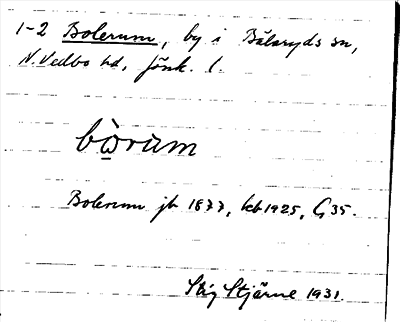 1-2 Bolerum, by i Bälaryds sn,
N. Vedbo hd, Jönk. l.
bòrùm
Bolerum jb 1877, kb 1925, G 35.
Stig Stjärne 1931.